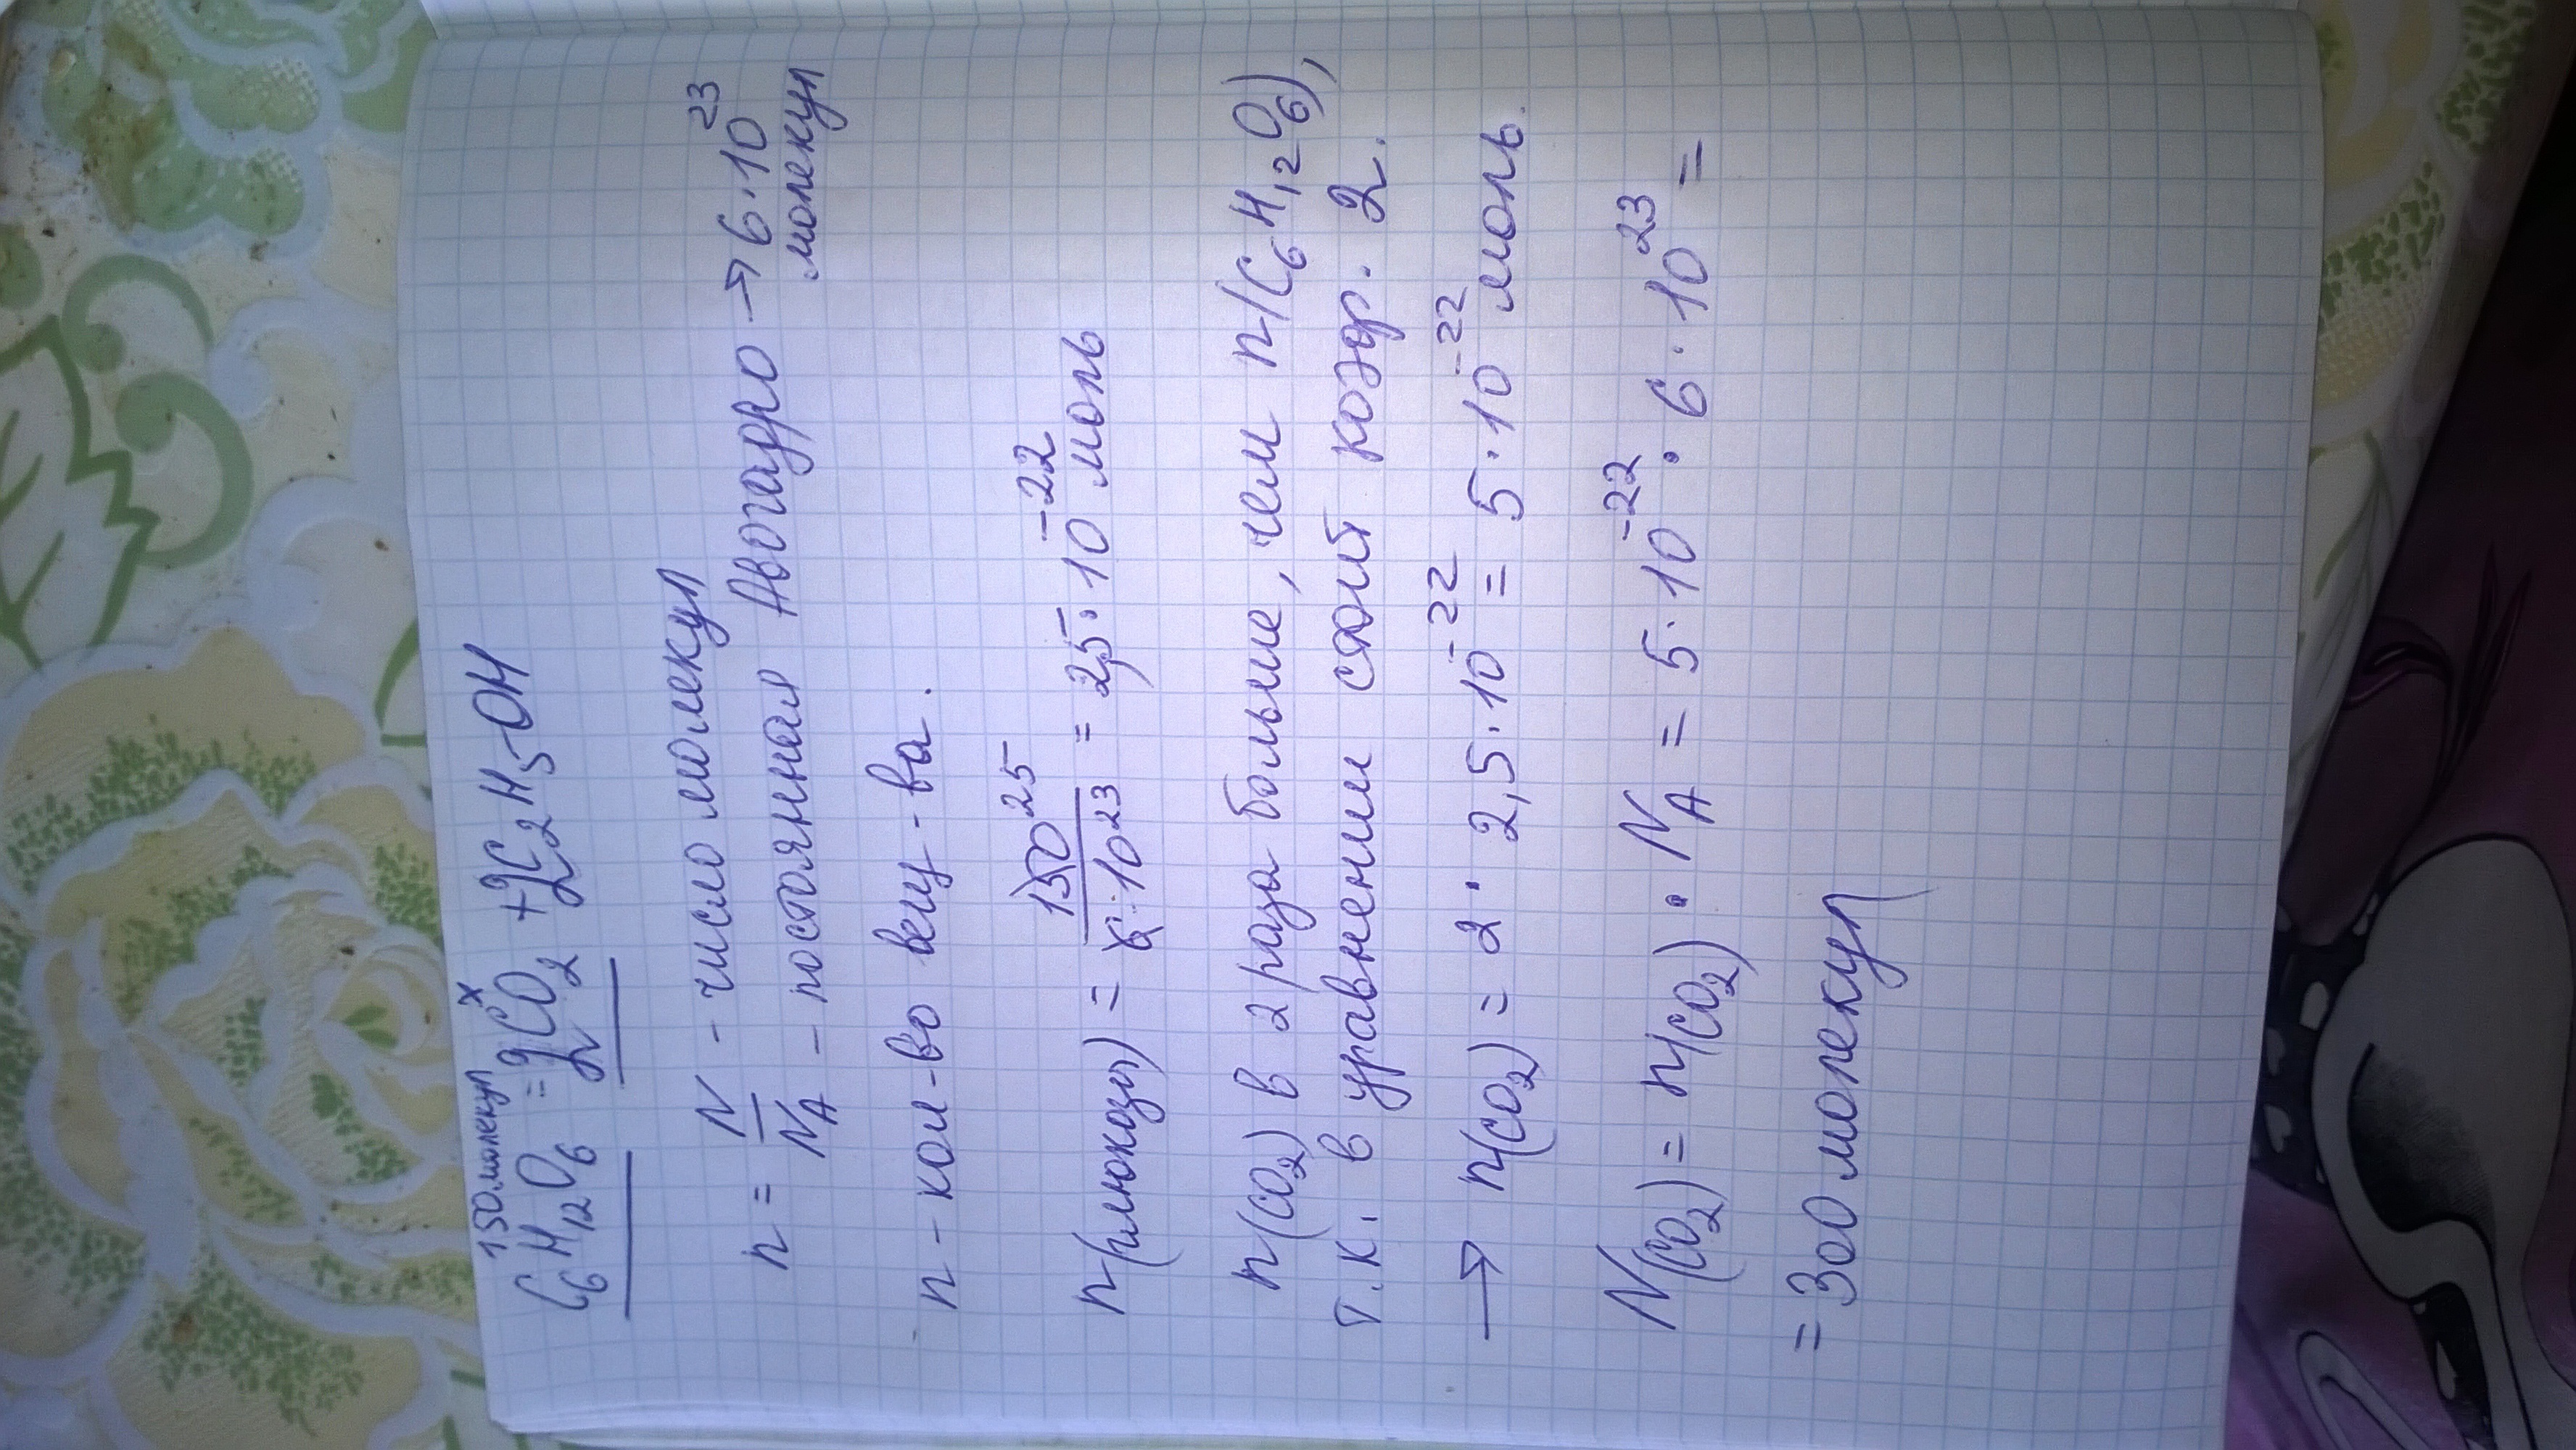 150 молекул x
C₆H₁₂O₆ = 2CO₂ + 2C₂H₅OH
n = N/N_A - число молекул
- постоянная Авогадро → 6·10²³ молекул
n - кол-во вещ-ва.
n(глюкозы) = 150 25 / 6·10²³ = 2,5·10⁻²² моль
n(CO₂) в 2 раза больше, чем n(C₆H₁₂O₆),
т.к. в уравнении стоит коэф. 2.
→ n(CO₂) = 2 · 2,5·10⁻²² = 5·10⁻²² моль
N(CO₂) = n(CO₂) · N_A = 5·10⁻²² · 6·10²³ =
= 300 молекул